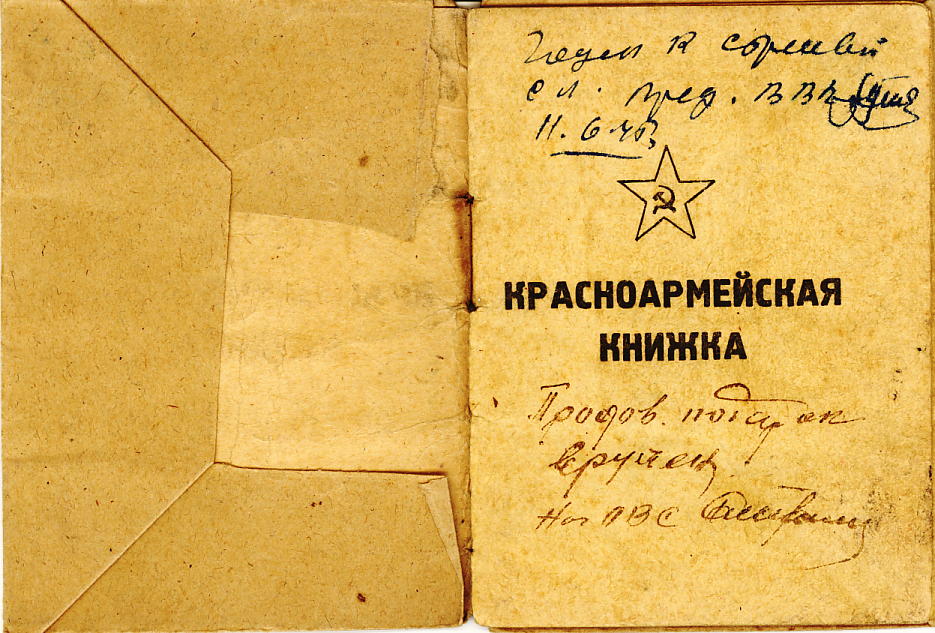 Годен к строевой
сл. пред. ВВК
11.6.45
КРАСНОАРМЕЙСКАЯ
КНИЖКА
Продов. подарок
вручен
Нач ПВС